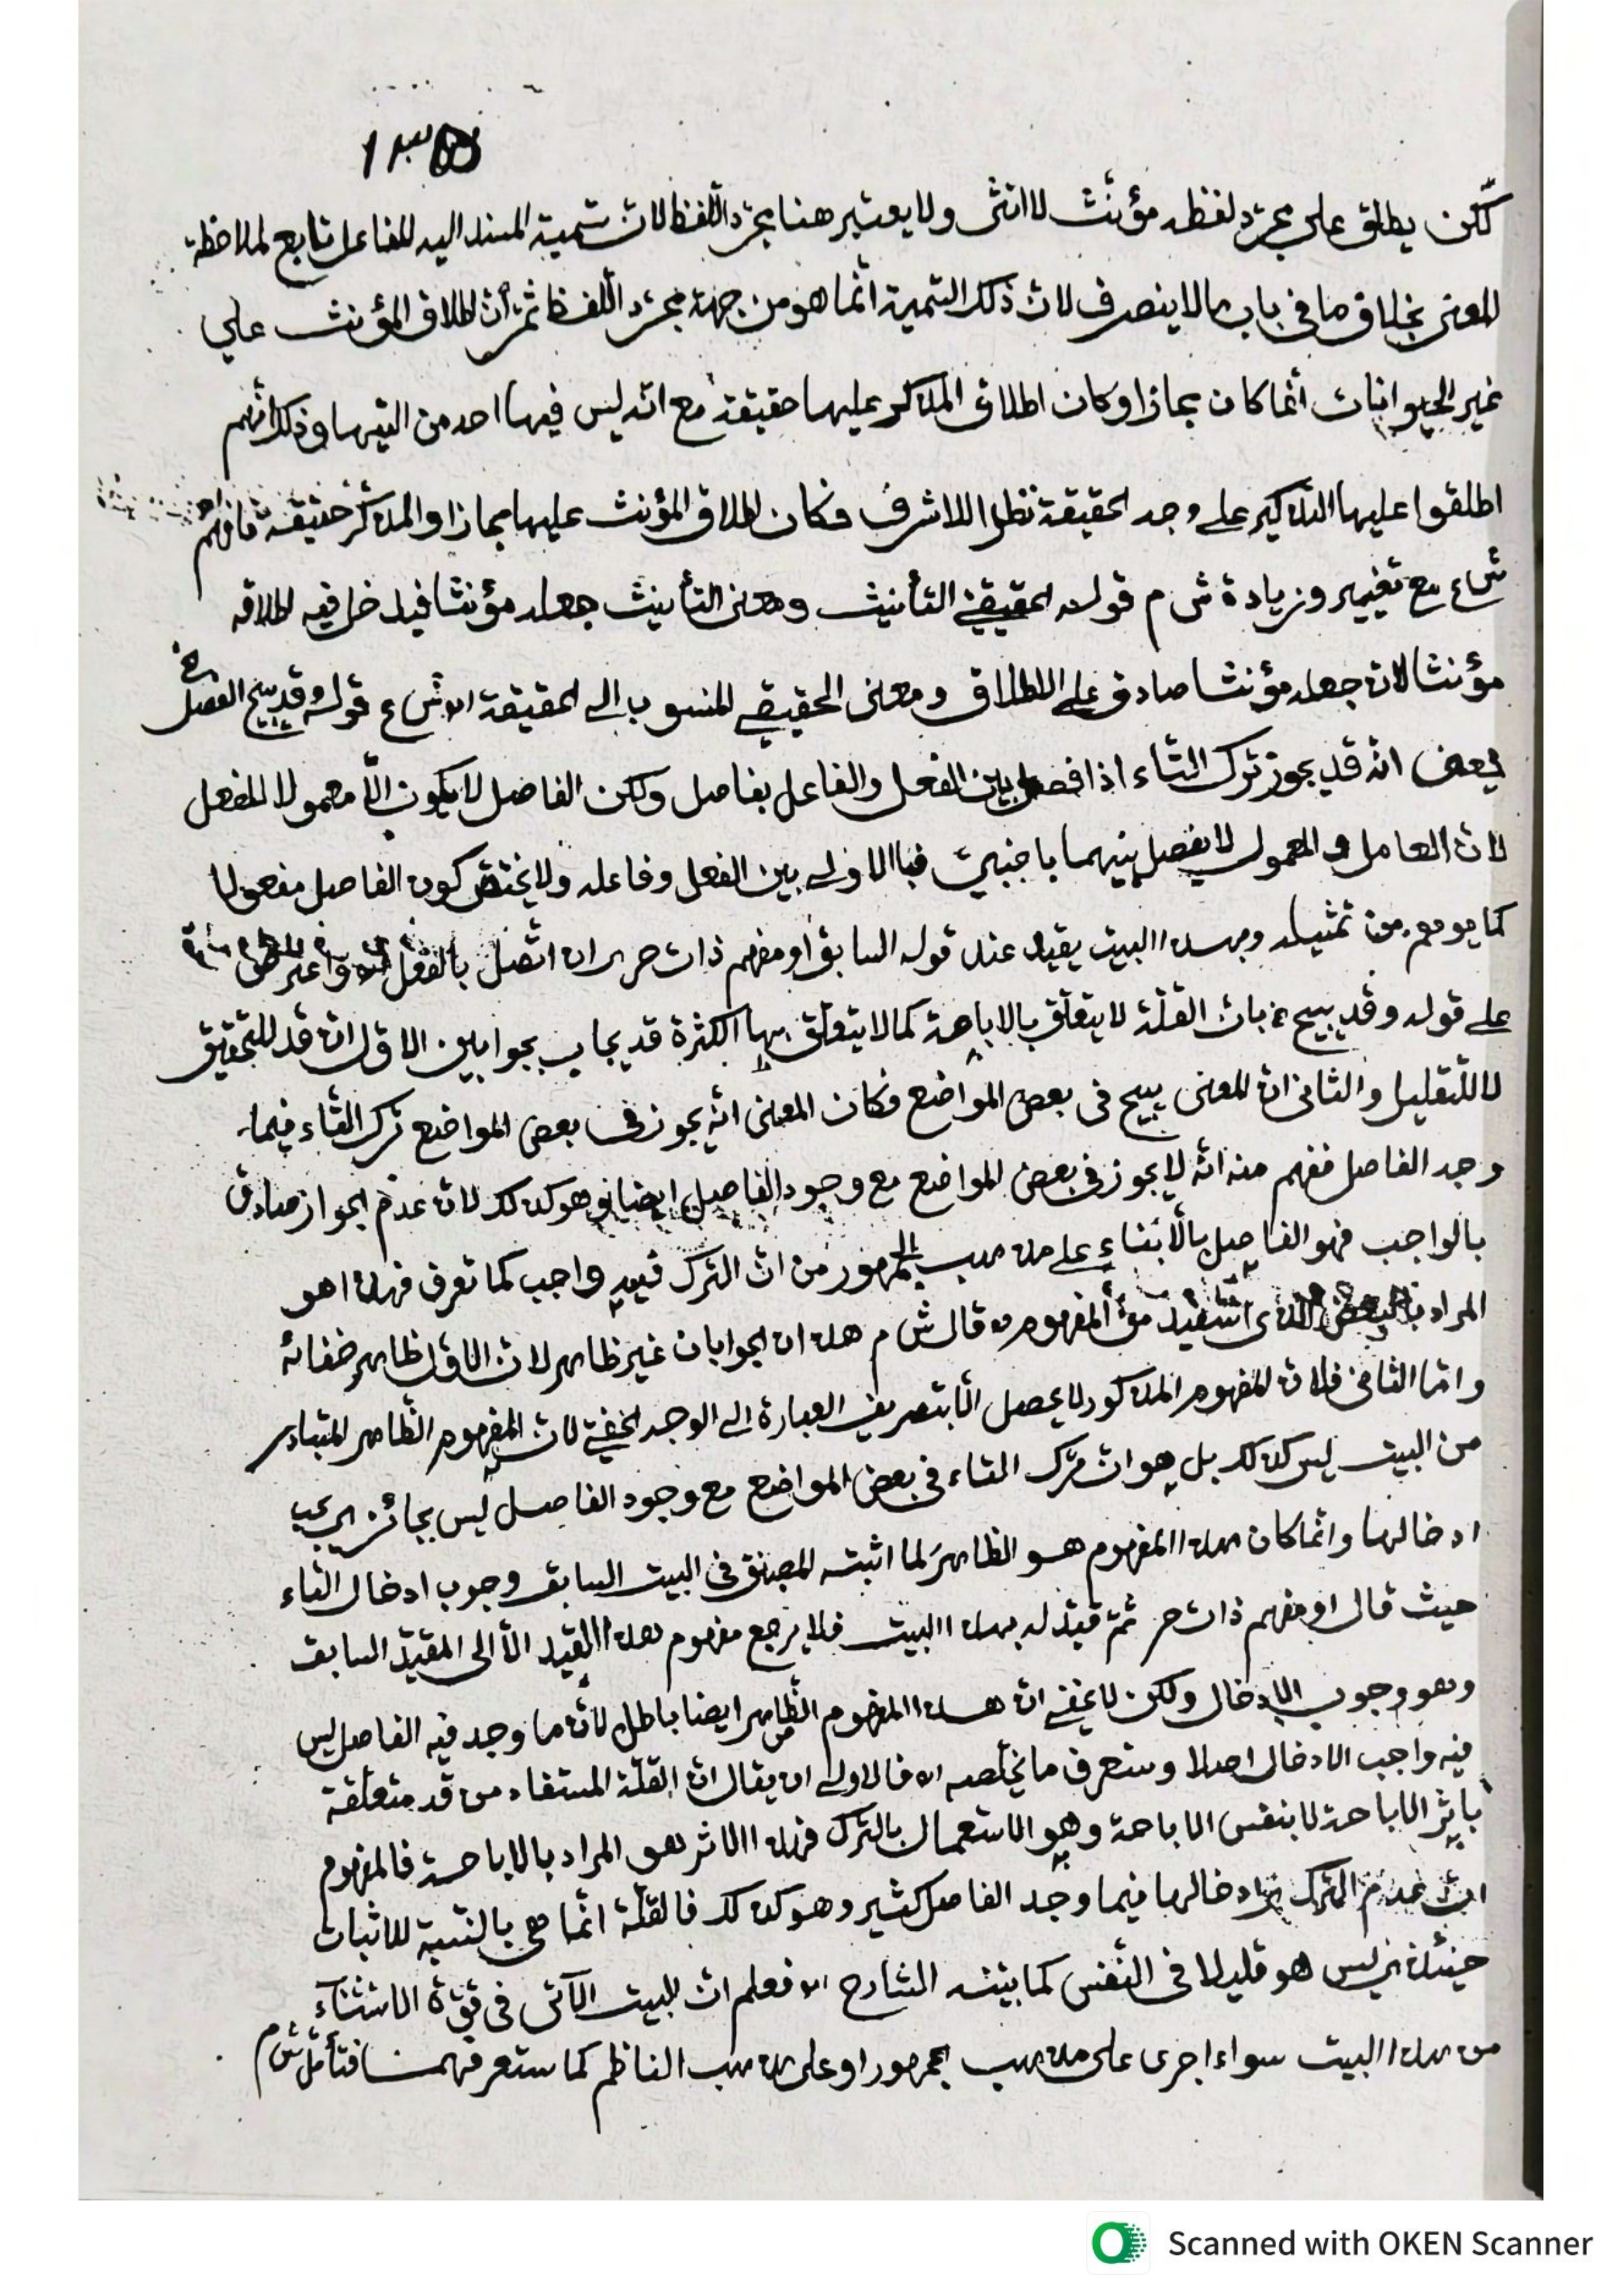 لكن يطلق على مجرّد لفظه مؤنث لا انثى ولا يعتبر هنا مجرّد اللفظ لان تسمية المسند اليه للفاعل تابع لملاحظة
المعنى بخلاف ما في باب ما لا ينصرف لان ذلك التسمية انّما هو من جهة مجرّد اللفظ ثمّ أنّ اطلاق المؤنث على
غير الحيوانات انّما كان مجازا وكان اطلاق المذكر عليها حقيقة مع انّه ليس فيها احد من وذلك انّهم
اطلقوا عليها التذكير على وجه الحقيقة نظرا للاشرف فكان اطلاق المؤنث عليها مجازا والمذكّر حقيقة فافهم
ش ع مع تغيير وزيادة ش م قوله الحقيقيّ التأنيث ومعنى التأنيث جعله مؤنثا فيدخل فيه اطلاقه
مؤنثا لان جعله مؤنثا صادق على الاطلاق ومعنى الحقيقي المنسوب الى الحقيقة اه ش ع قوله وقد يبيح الفصل خ
يعنى انّه قد يجوز ترك التاء اذا فصل بين الفعل والفاعل بفاصل ولكن الفاصل لا يكون الّا معمولا للفعل
لانّ العامل والمعمول لا يفصل بينهما باجنبيّ فبالاولى بين الفعل وفاعله ولا يختصّ كون الفاصل مفعولا
كما يوهم من تمثيله وبهذا البيت يقيد عند قوله السابق او مفهم ذات حر اى ان اتّصل بالفعل اه واعترض
على قوله وقد يبيح خ بان القلّة لا يتعلّق بالاباحة كما لا يتعلّق بها الكثرة قد يجاب بجوابين الاوّل انّ قد للتحقيق
لا للتقليل والثانى انّ المعنى يبيح في بعض المواضع فكان المعنى انّه يجوز في بعض المواضع ترك التاء فيما
وجد الفاصل ففهم منه انّه لا يجوز في بعض المواضع مع وجود الفاصل ايضا وهو كذلك لانّ عدم الجواز صادق
بالواجب فهو الفاصل بالّا بناء على مذهب الجمهور من انّ الترك فيه واجب كما تعرف فهذا هو
المراد بالبعض الذى استفيد من المفهوم وقال ش م هذان الجوابان غير ظاهر لان الاوّل ظاهر خفائه
وامّا الثانى فلانّ المفهوم المذكور لا يحصل الّا بتصريف العبارة الى الوجه الخفيّ لان المفهوم الظاهر المتبادر
من البيت ليس كذلك بل هو انّ ترك التاء في بعض المواضع مع وجود الفاصل ليس بجائز اى يجب
ادخالها وانّما كان هذا المفهوم هو الظاهر لما اثبته المصنف في البيت السابق وجوب ادخال التاء
حيث قال او مفهم ذات حر ثمّ قيّد له بهذا البيت فلا يرجع مفهوم هذا القيد الّا الى المقيّد السابق
وهو وجوب الادخال ولكن لا يخفى انّ هذا المفهوم الظاهر ايضا باطل لانّه ما وجد فيه الفاصل ليس
فيه واجب الادخال اصلا وستعرف ما يخلّصه اه فالاولى ان يقال انّ القلّة المستفاد من قد متعلّقة
باثر الاباحة لا بنفس الاباحة وهو الاستعمال بالترك فهذا الاثر هو المراد بالاباحة فالمفهوم
انّ عدم الترك ادخالها فيما وجد الفاصل كثير وهو كذلك فالقلّة انّما هى بالنسبة للاثبات
حينئذ ليس هو قليلا في النّفس كما بيّنه الشارح اه فعلم انّ البيت الآتى في قوّة الاستثناء
من هذا البيت سواء اجرى على مذهب الجمهور او على مذهب الناظم كما ستعرفهما فتأمّل ش م
Scanned with OKEN Scanner